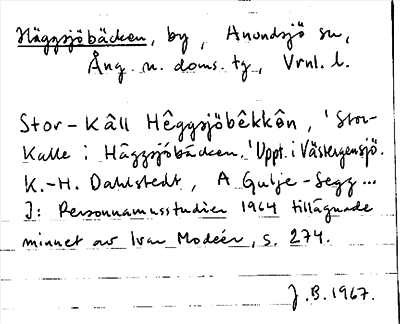 Häggsjöbäcken, by, Anundsjö sn,
Ång. n. doms. tg, Vrnl. l.
Stor-Kâll Hêggsjöbêkkên, 'Stor-
Kalle i Häggsjöbäcken.' Uppt. i Västergensjö.
K.-H. Dahlstedt, A Gulje-Segg...
I: Personnamnsstudier 1964 tillägnade
minnet av Ivar Modéer, s. 274.
J.B. 1967.